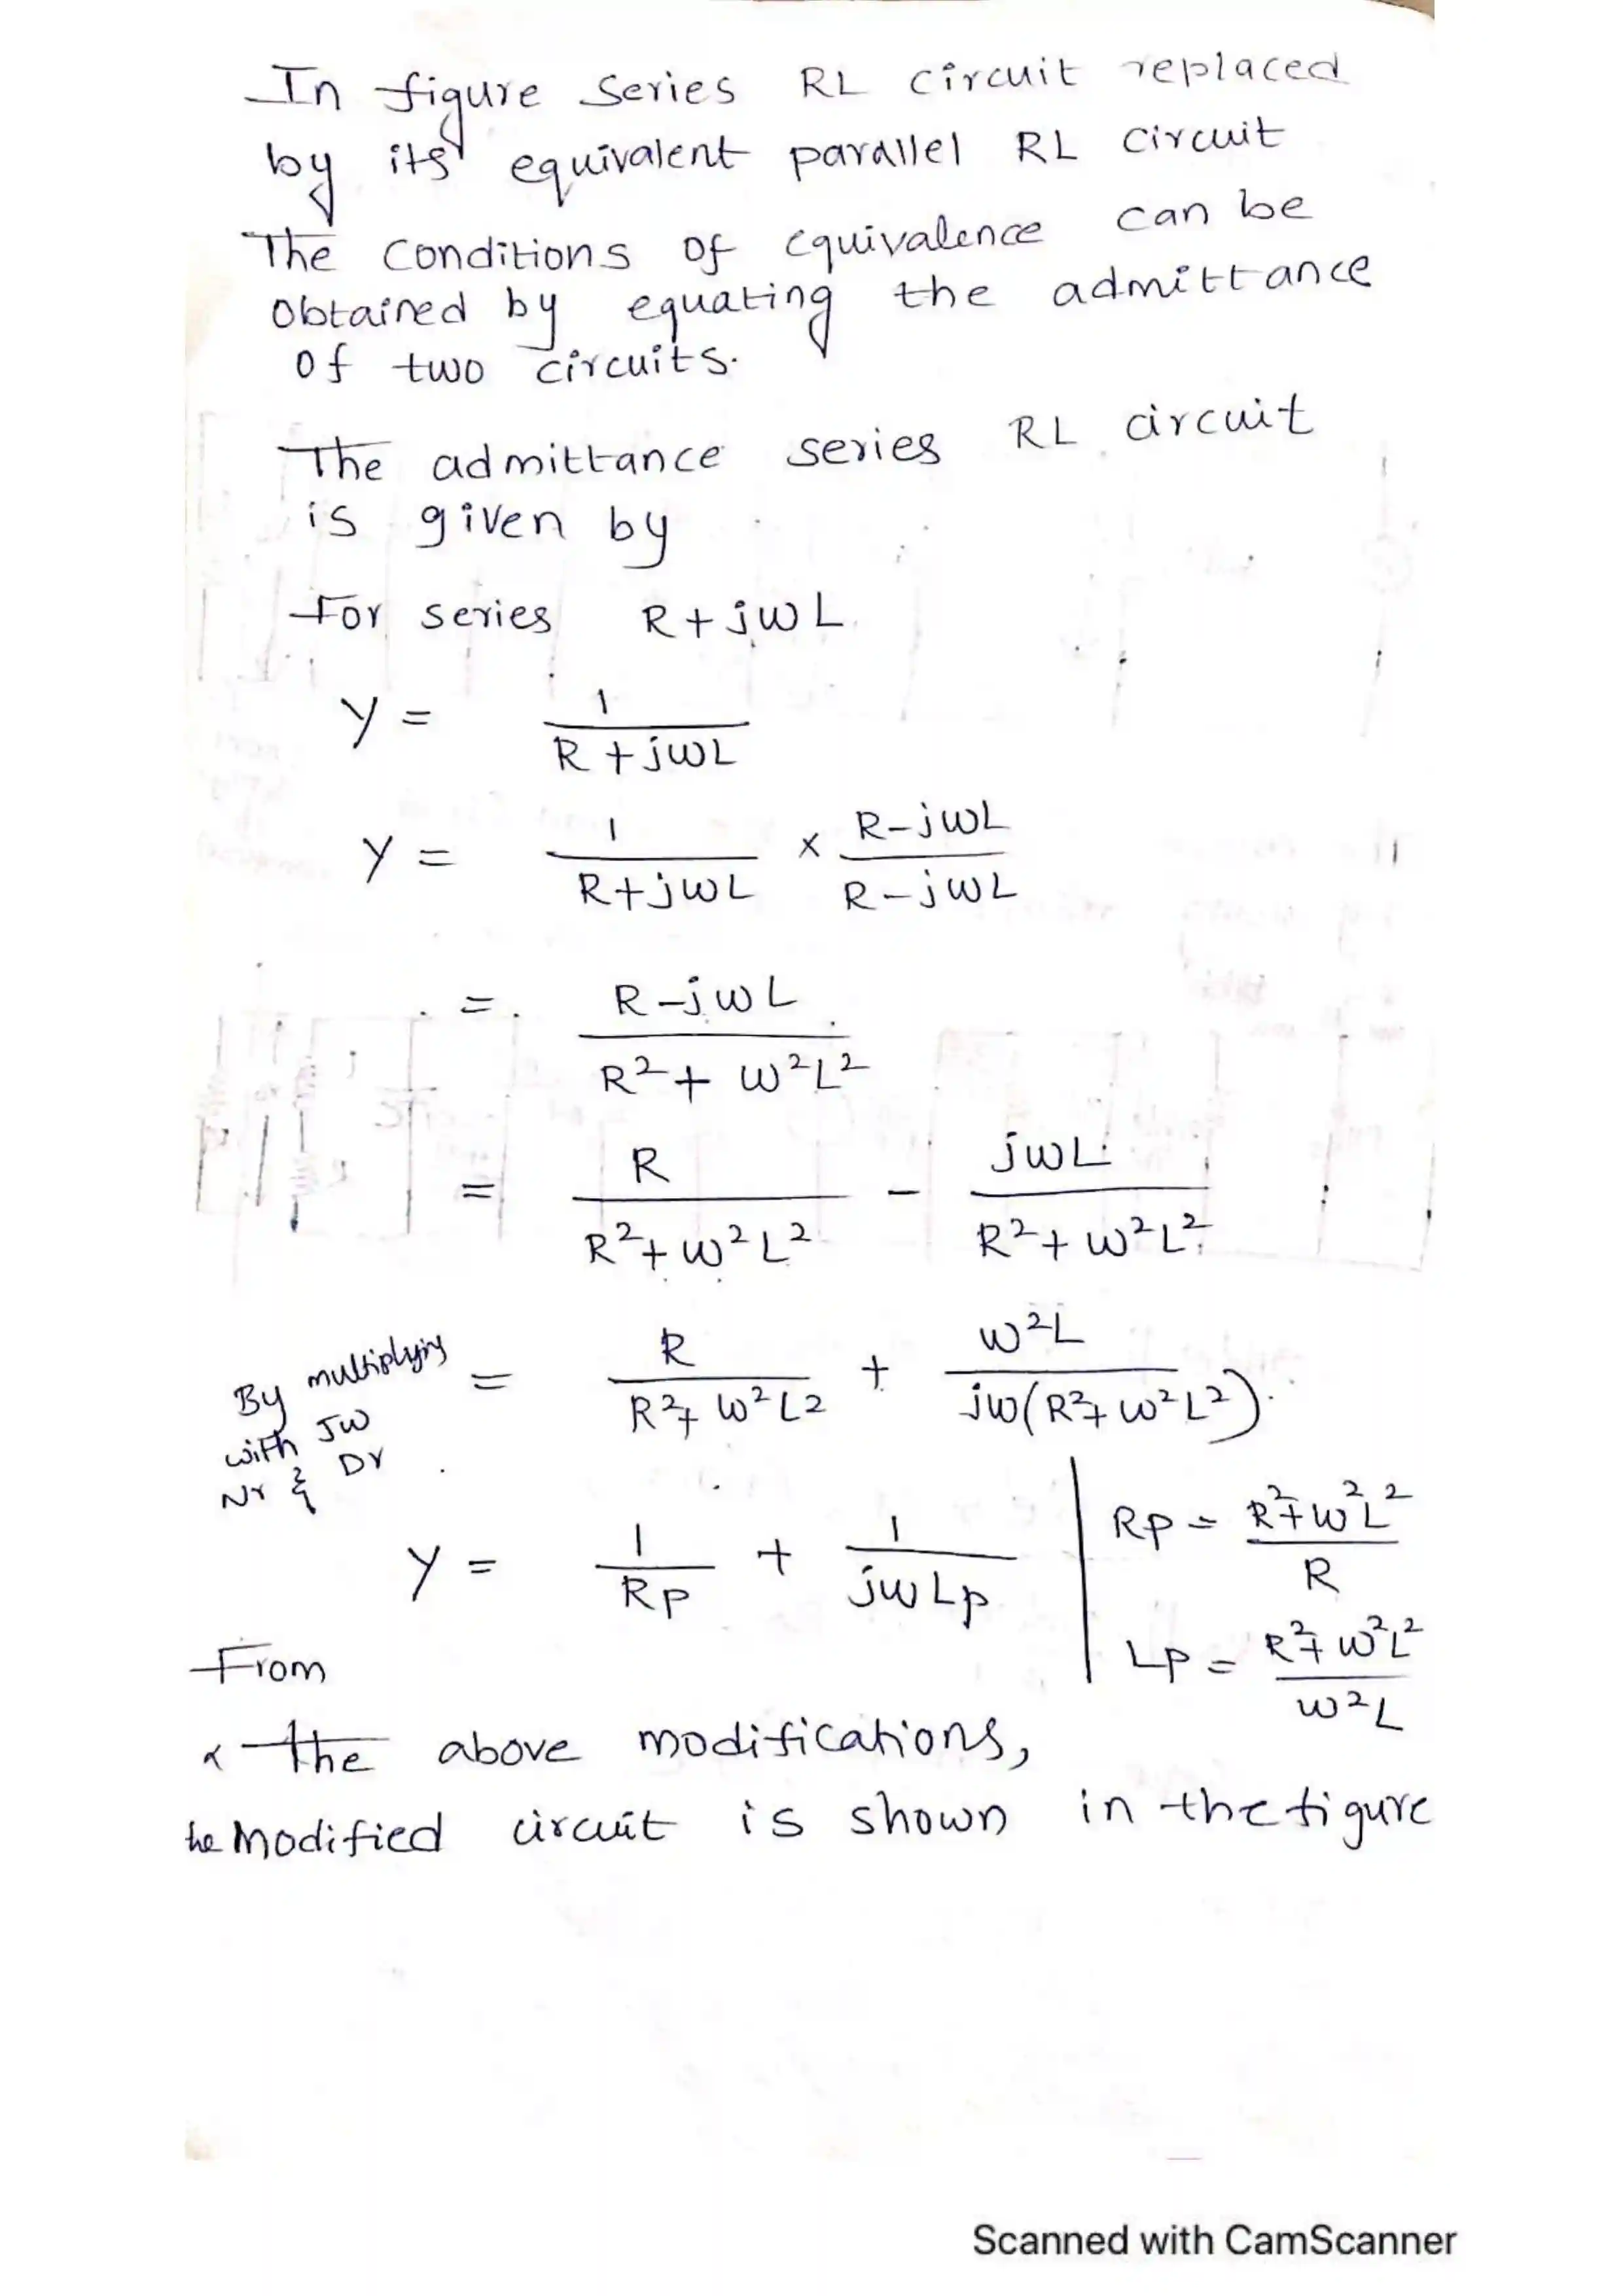 In figure Series RL circuit replaced
by its equivalent parallel RL circuit
The Conditions of equivalence can be
Obtained by equating the admittance
Of two circuits.
The admittance series RL circuit
is given by
For series R+jwL
Y = 1/(R+jwL)
Y = 1/(R+jwL) x (R-jwL)/(R-jwL)
= (R-jwL)/(R²+w²L²)
= R/(R²+w²L²) - jwL/(R²+w²L²)
By multiplying with Jw Nr & Dr = R/(R²+w²L²) + w²L/(jw(R²+w²L²))
Y = 1/Rp + 1/(jwLp)
Rp = (R²+w²L²)/R
Lp = (R²+w²L²)/(w²L)
From
the above modifications,
he Modified circuit is shown in the figure
Scanned with CamScanner